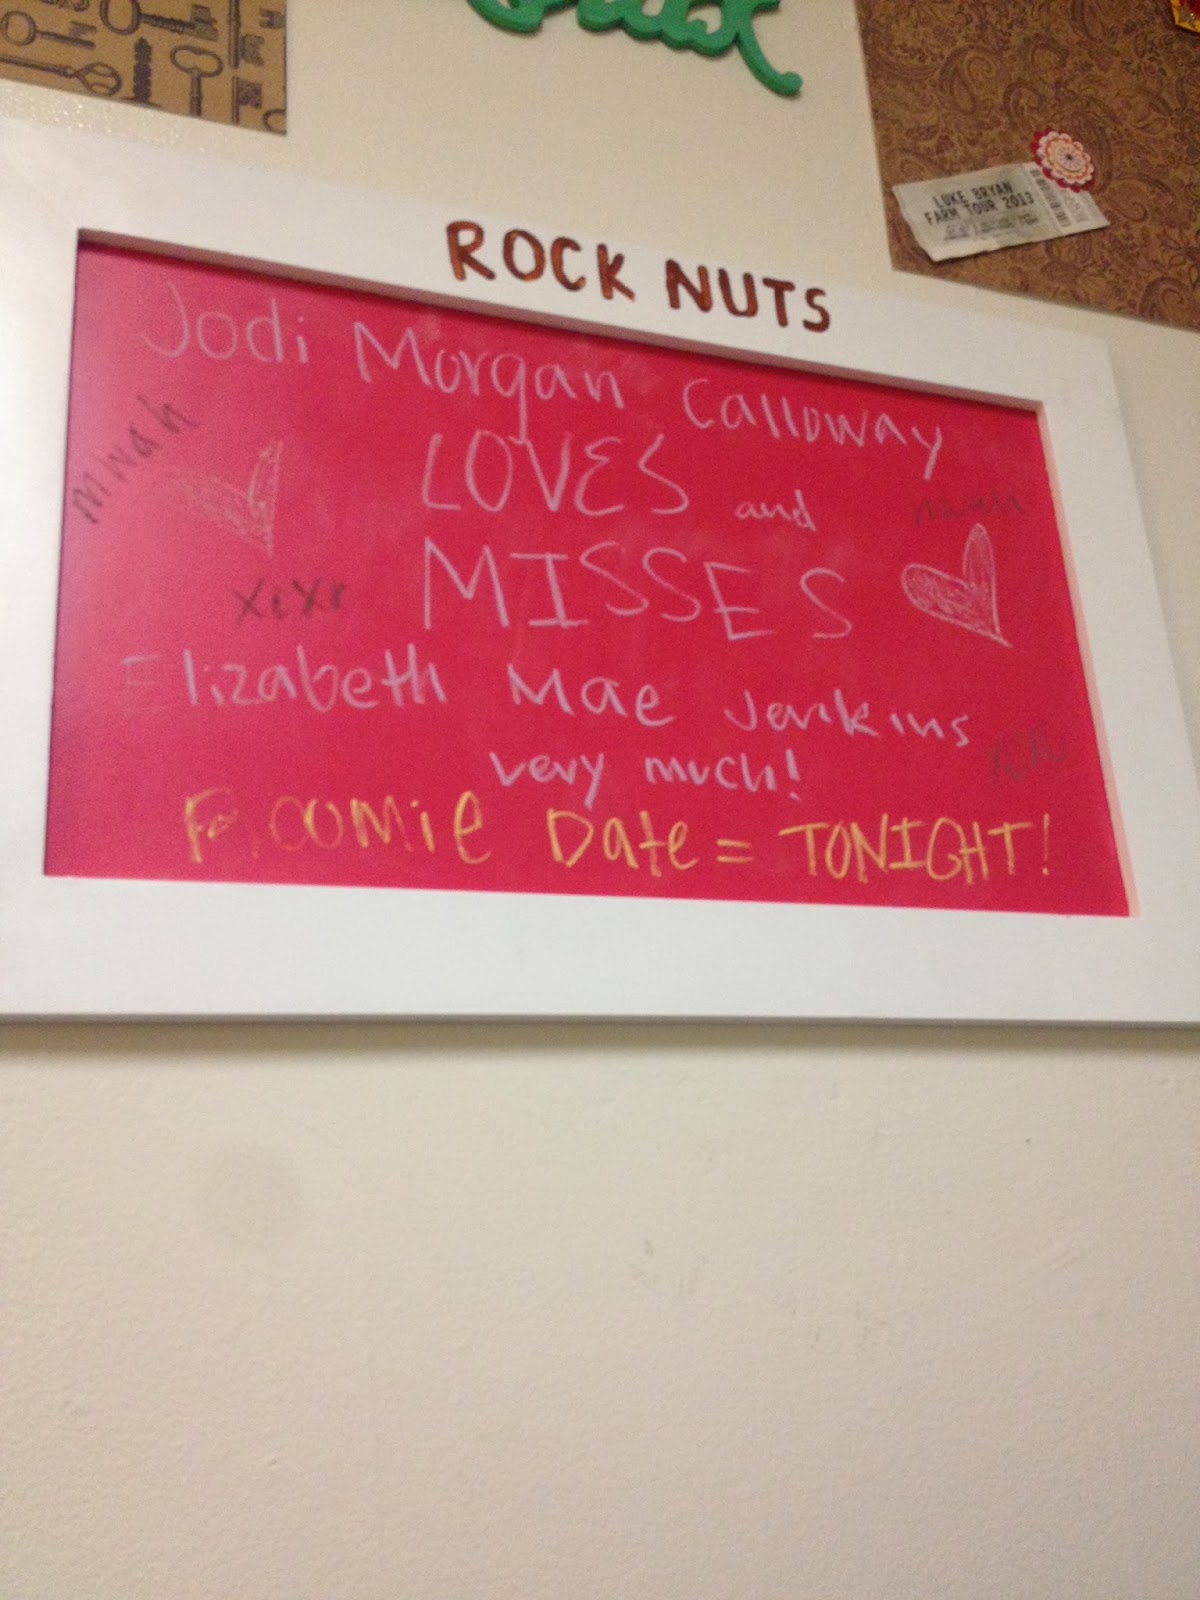 LUKE BRYAN
FARM TOUR 2013
ROCK NUTS
Jodi Morgan Calloway
LOVES and
MISSES
mwah
xoxo
Elizabeth Mae Jenkins
very much!
Date = TONIGHT!